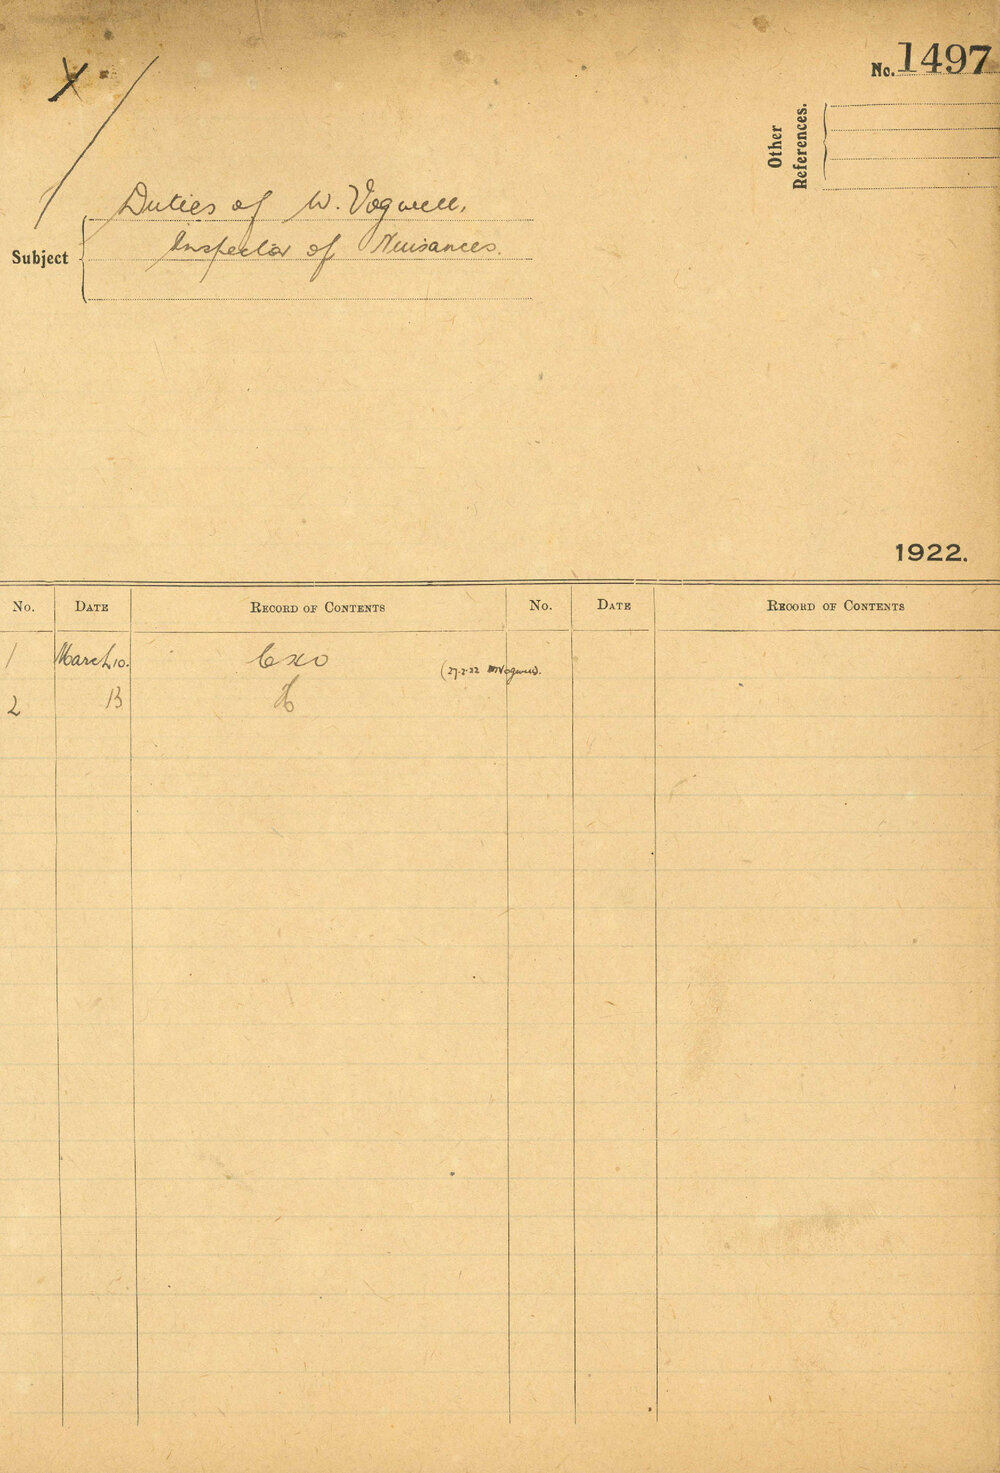 X
No. 1497
Other
References.
Duties of W. Vogwell,
Subject
Inspector of Nuisances.
1922.
No. DATE RECORD OF CONTENTS No. DATE RECORD OF CONTENTS
1 March 10. Exo (27.2.22 Vogwell).
2 13